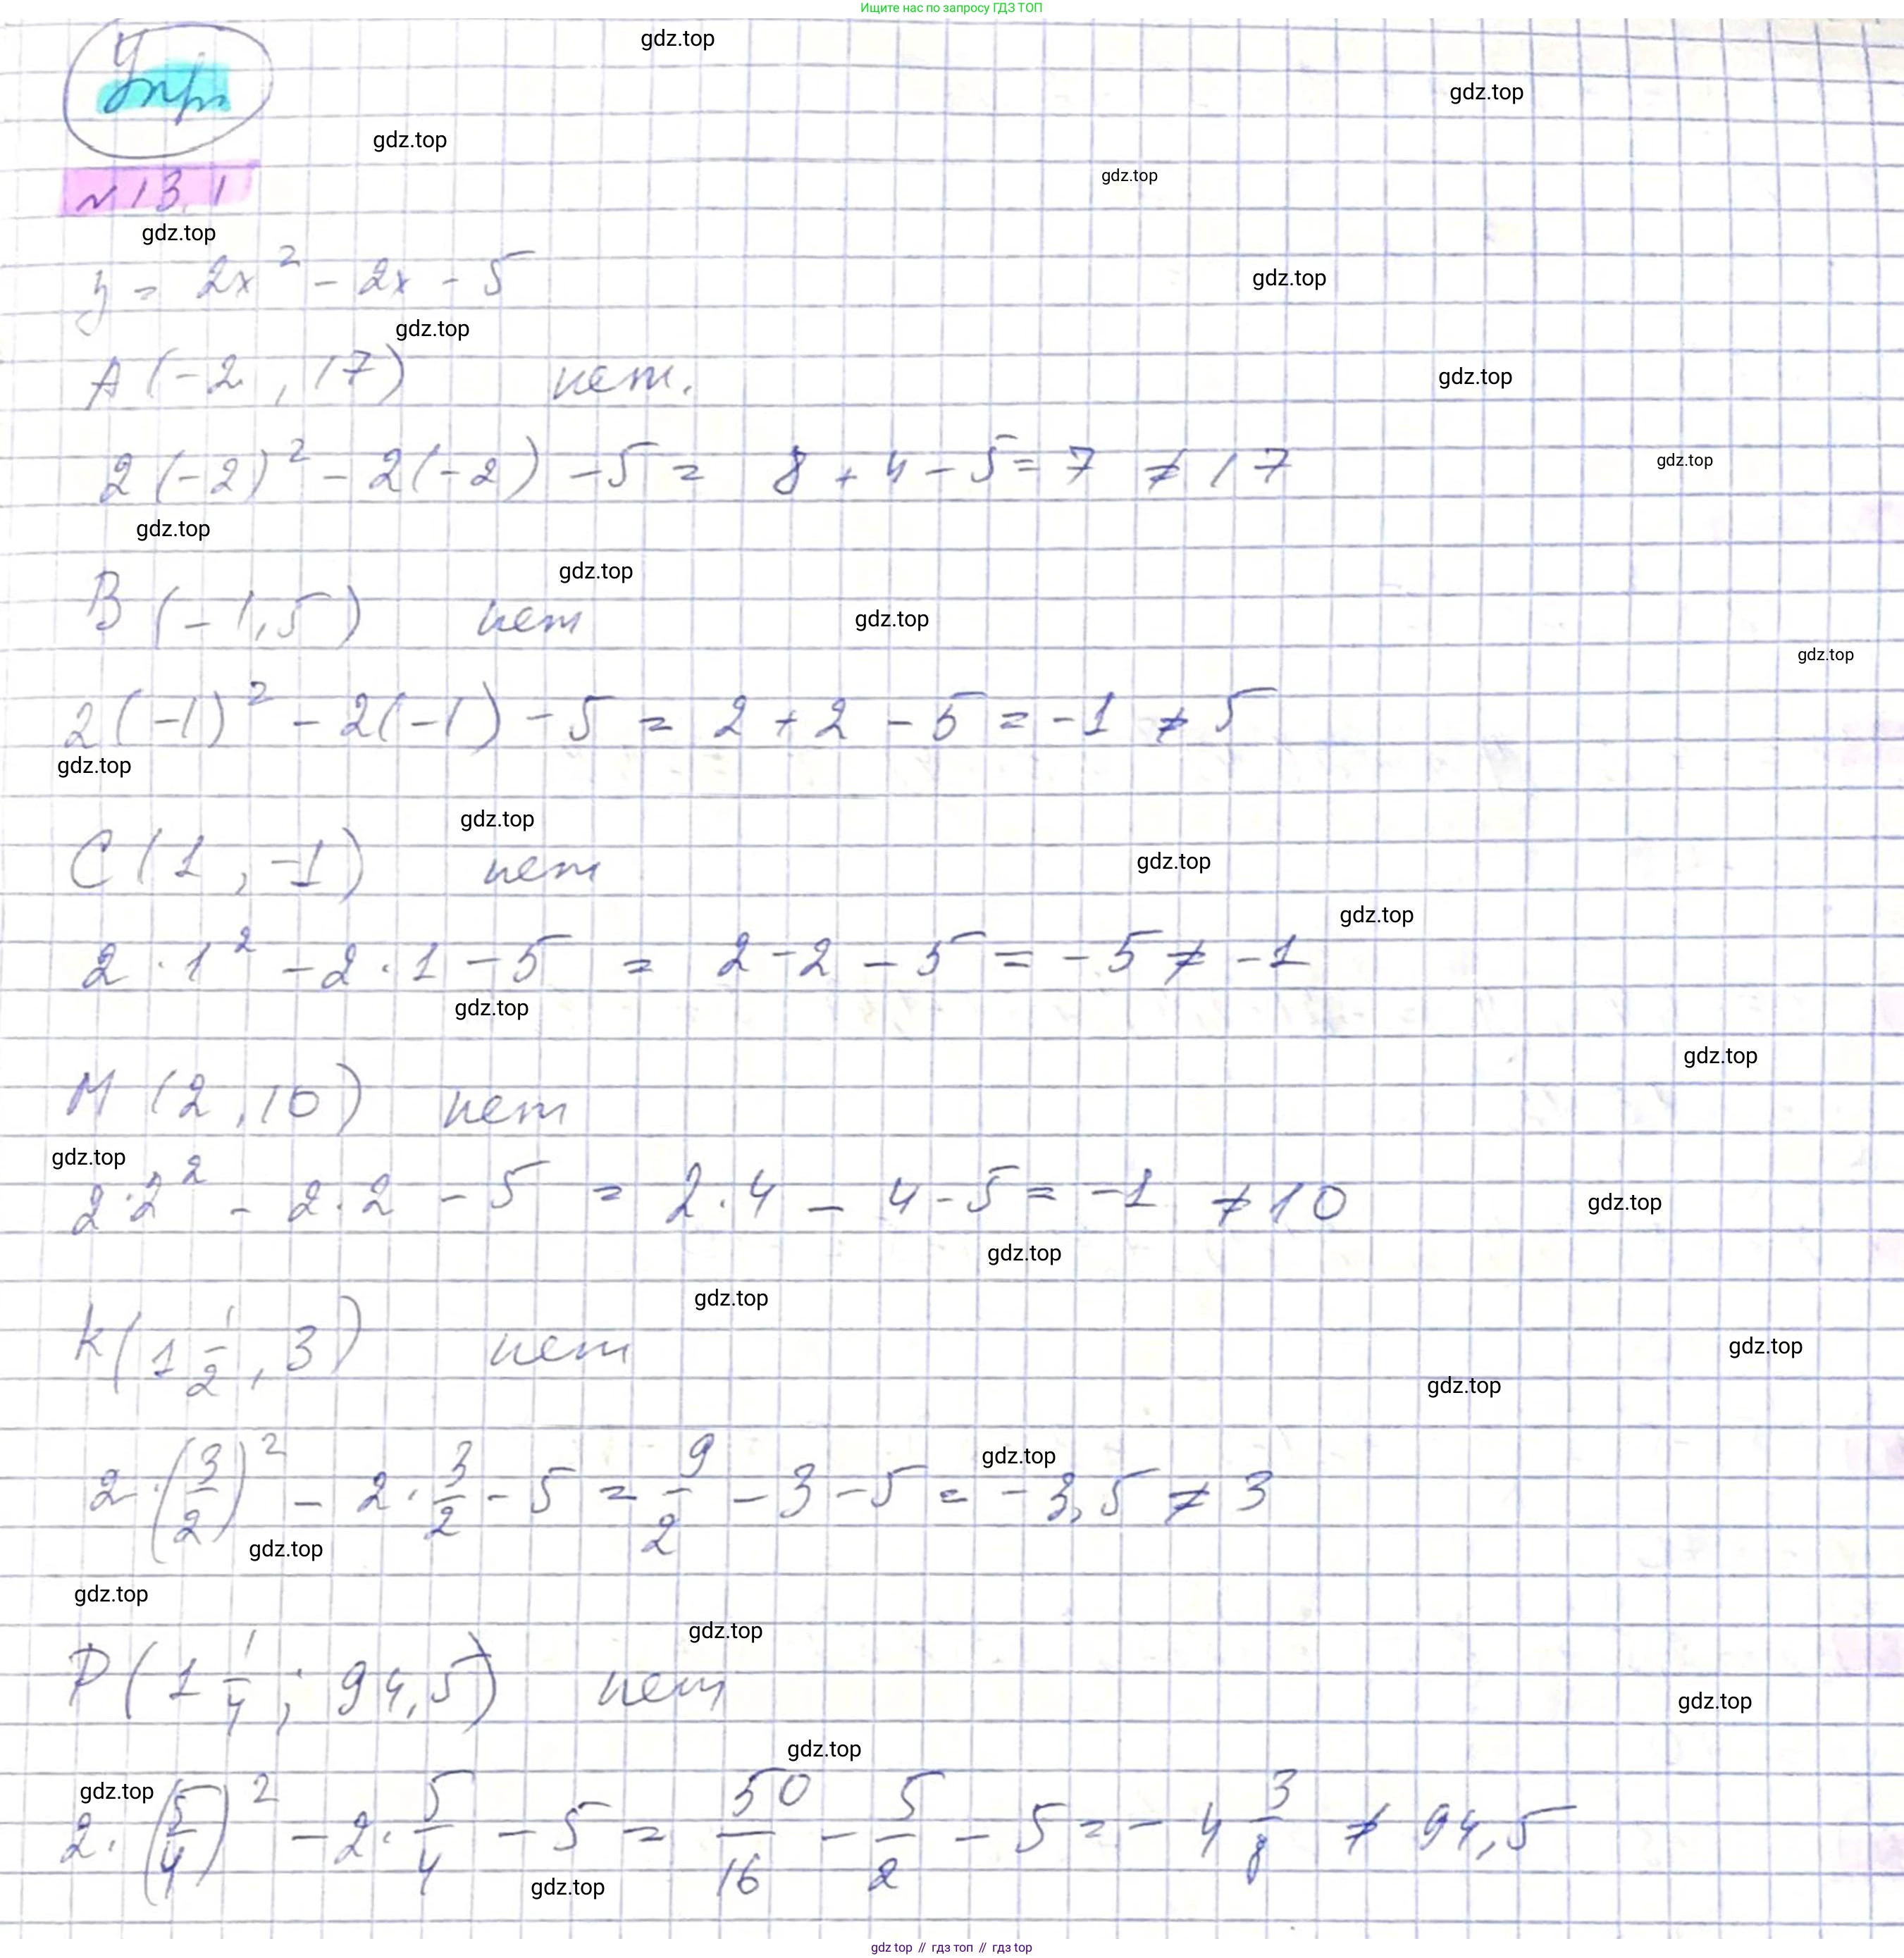 Ищите нас по запросу ГДЗ ТОП
gdz.top
Упр
gdz.top
gdz.top
gdz.top
N 13.1
gdz.top
y = 2x² - 2x - 5
gdz.top
gdz.top
A (-2, 17) нет.
gdz.top
2(-2)² - 2(-2) - 5 = 8 + 4 - 5 = 7 ≠ 17
gdz.top
gdz.top
gdz.top
B (-1, 5) нет
gdz.top
gdz.top
2(-1)² - 2(-1) - 5 = 2 + 2 - 5 = -1 ≠ 5
gdz.top
gdz.top
C (1, -1) нет
gdz.top
gdz.top
2 · 1² - 2 · 1 - 5 = 2 - 2 - 5 = -5 ≠ -1
gdz.top
gdz.top
M (2, 10) нет
gdz.top
2·2² - 2·2 - 5 = 2·4 - 4 - 5 = -1 ≠ 10
gdz.top
gdz.top
gdz.top
K (1 1/2, 3) нет
gdz.top
gdz.top
2·(3/2)² - 2·3/2 - 5 = 9/2 - 3 - 5 = -3,5 ≠ 3
gdz.top
gdz.top
gdz.top
gdz.top
P (1 1/4; 94,5) нет
gdz.top
gdz.top
gdz.top
2·(5/4)² - 2·5/4 - 5 = 50/16 - 5/2 - 5 = -4 3/8 ≠ 94,5
gdz.top
gdz top // гдз топ // gdz top